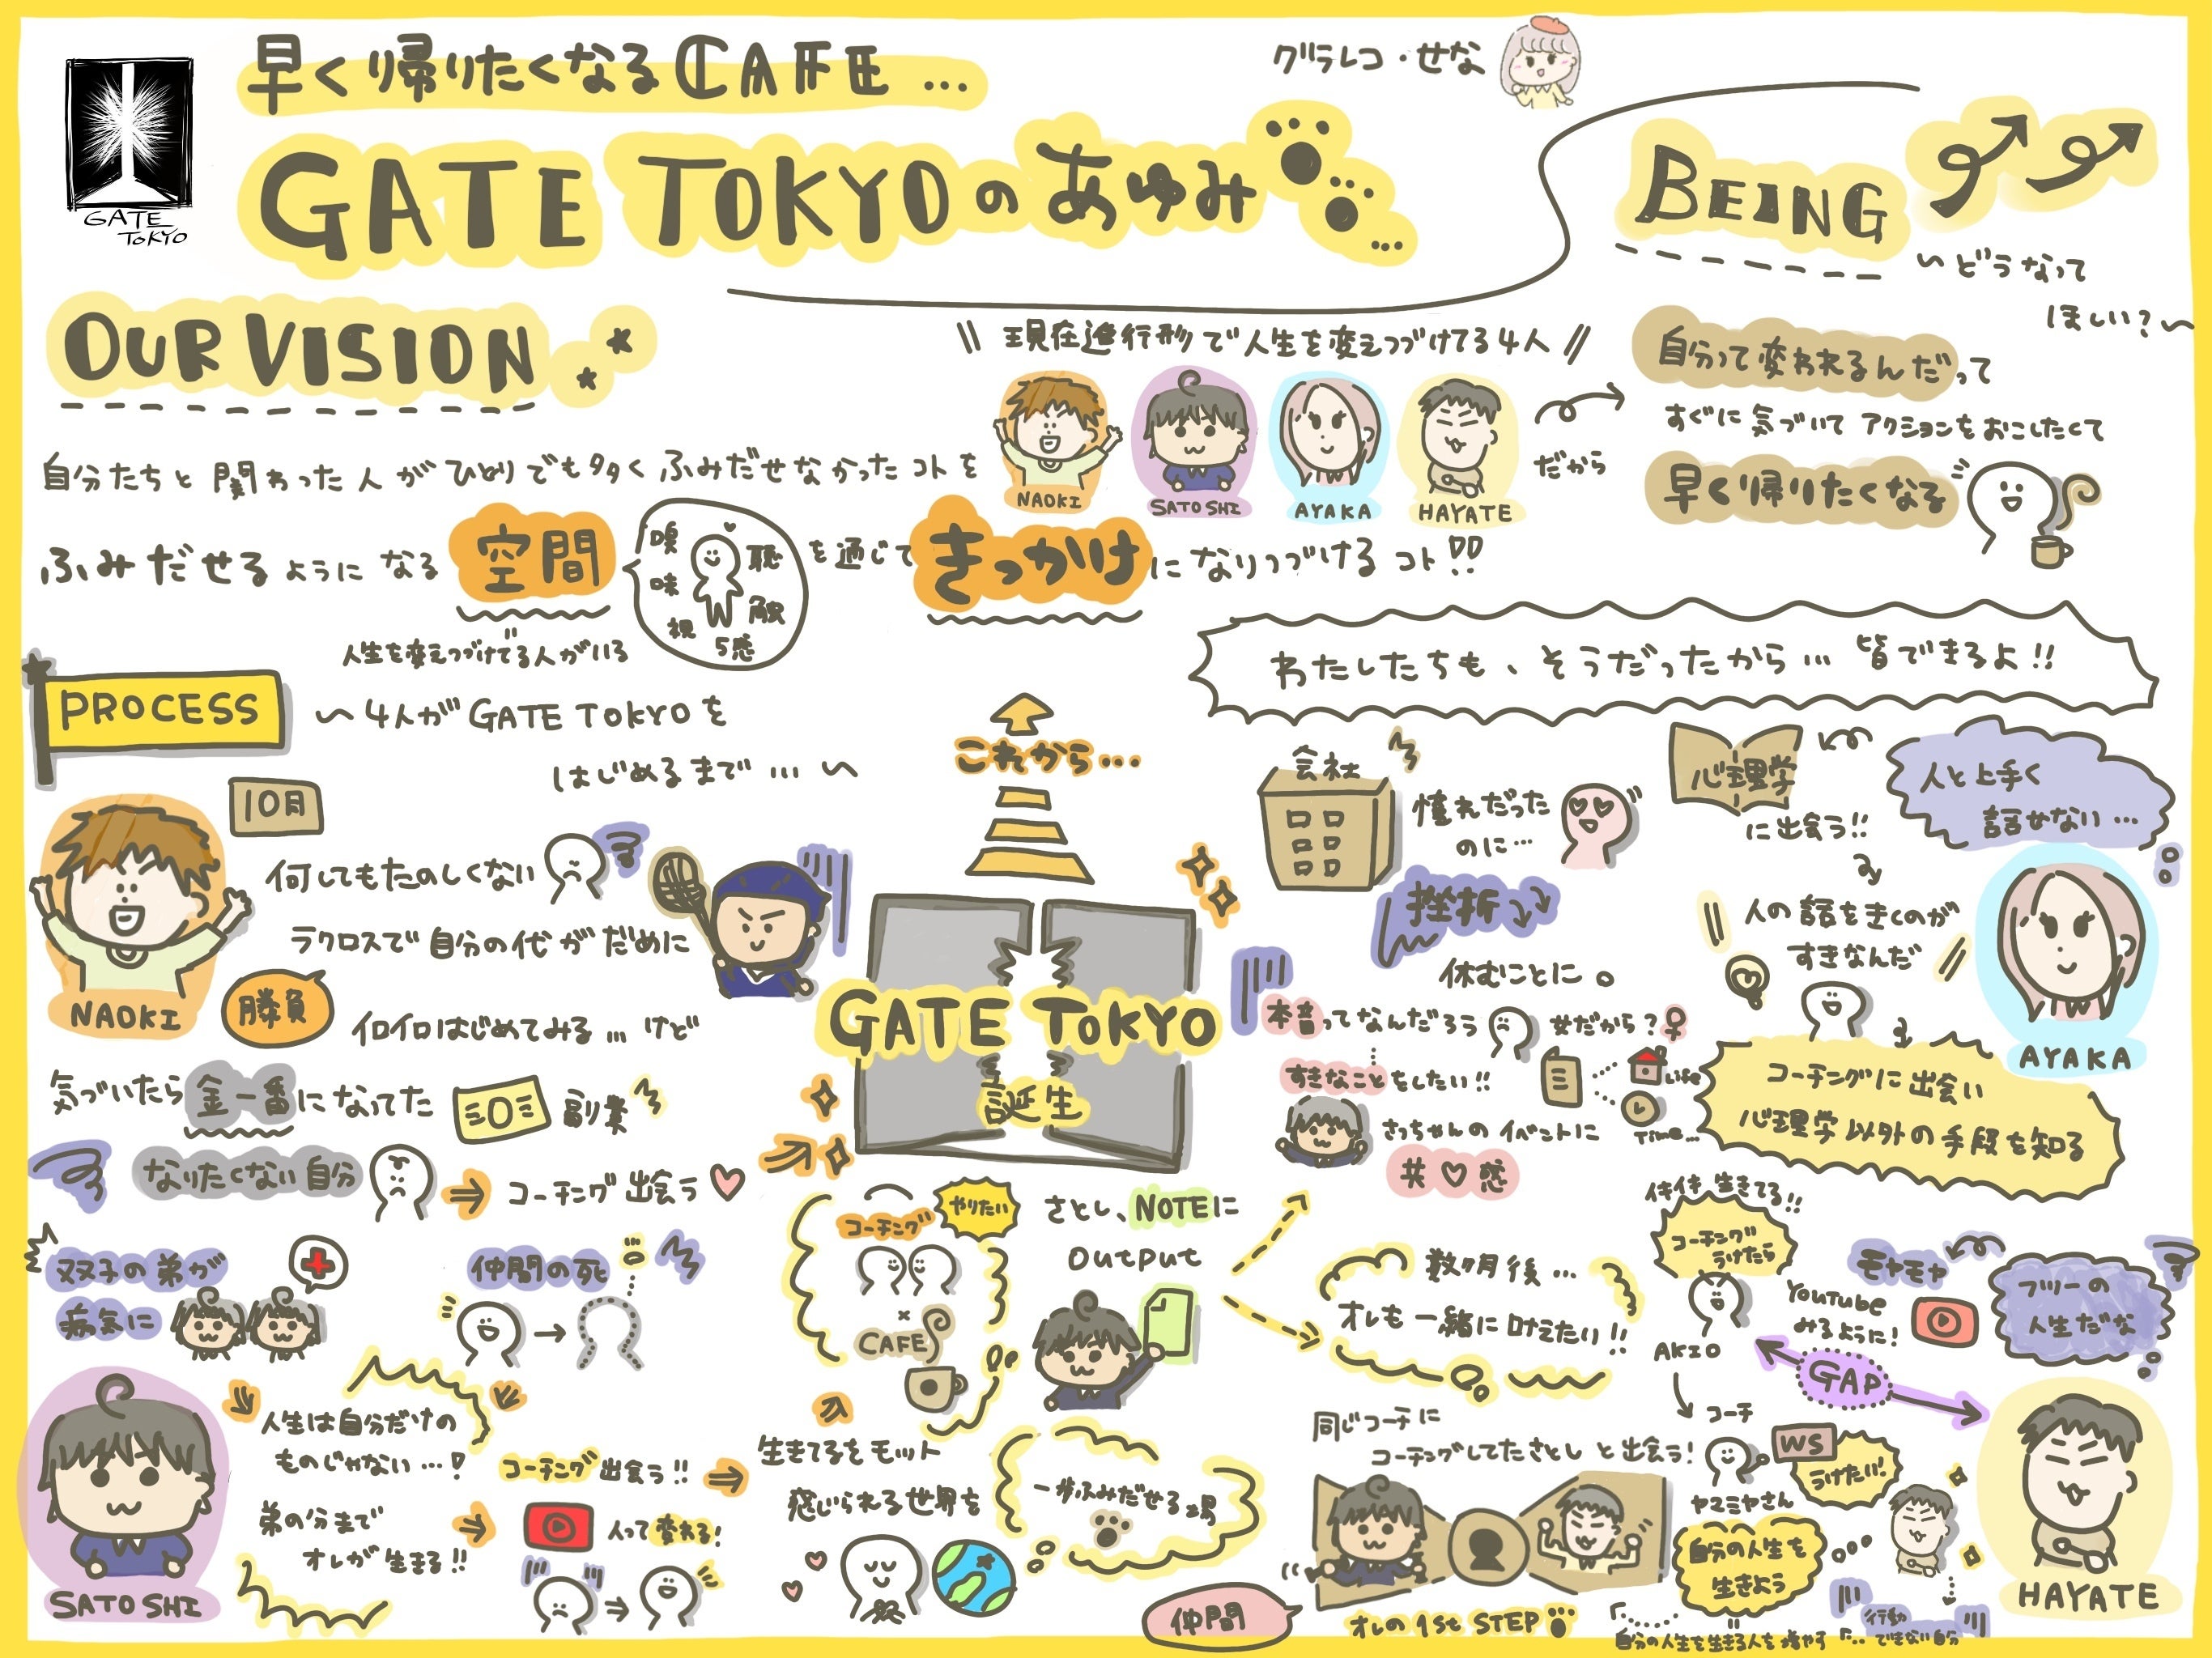 早く帰りたくなるCAFE…
グラレコ・せな
GATE TOKYO
GATE TOKYOのあゆみ…
BEING
〜どうなって
ほしい?〜
OUR VISION
\\ 現在進行形で人生を変えつづけてる4人 //
NAOKI
SATOSHI
AYAKA
HAYATE
だから
自分って変われるんだって
すぐに気づいてアクションをおこしたくて
早く帰りたくなる
自分たちと関わった人がひとりでも多くふみだせなかったコトを
ふみだせるようになる空間
嗅
聴
味
触
視
5感
を通じてきっかけになりつづけるコト!!
人生を変えつづけてる人がいる
わたしたちも、そうだったから… 皆できるよ!!
PROCESS
〜4人がGATE TOKYOを
はじめるまで…〜
10月
NAOKI
何してもたのしくない
ラクロスで自分の代がだめに
勝負
イロイロはじめてみる…けど
気づいたら金一番になってた
副業
なりたくない自分
コーチング出会う
双子の弟が
病気に
仲間の死
SATOSHI
人生は自分だけの
ものじゃない…!
弟の分まで
オレが生きる!!
コーチング出会う!!
人って変れる!
生きてるをモット
感じられる世界を
一歩ふみだせる場
コーチング
やりたい
×
CAFE
さとし、NOTEに
OUTPUT
これから…
GATE TOKYO
誕生
会社
憧れだった
のに…
挫折
休むことに。
本音ってなんだろう
女だから?
すきなことをしたい!!
Life
Time…
さっちゃんのイベントに
共♡感
人と上手く
話せない…
心理学
に出会う!!
人の話をきくのが
すきなんだ
AYAKA
コーチングに出会い
心理学以外の手段を知る
数ヶ月後…
オレも一緒に叶えたい!!
同じコーチに
コーチングしてたさとしと出会う!
仲間
オレの1st STEP
フツーの
人生だな
モヤモヤ
YouTube
みるように!
GAP
イキイキ生きてる!!
コーチング
うけたら
AKIO
コーチ
ヤマミヤさん
WS
うけたい!
自分の人生を
生きよう
自分の人生を生きる人を増やす
行動
できない自分
HAYATE